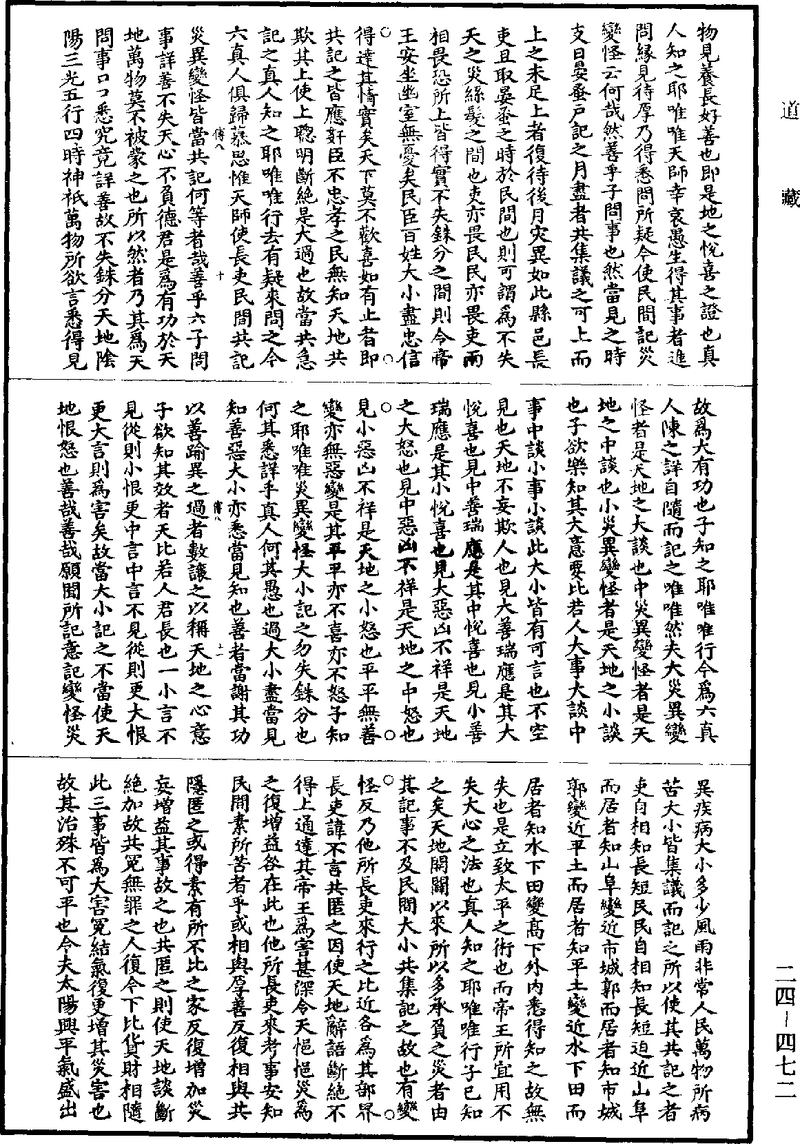 道藏
物見養長好善也即是地之悅喜之證也真
人知之耶唯唯天師幸哀愚生得其事者進
問緣見待厚乃得悉問所疑今使民間記災
變怪云何哉然善乎子問事也然當見之時
支日晏蚤戶記之月盡者共集議之可上而
上之未足上者復待後月災異如此縣邑長
吏且取晏蚤之時於民間也則可謂為不失
天之災絲髮之間也吏亦畏民民亦畏吏而
相畏恐所上皆得實不失銖分之間則令帝
王安坐幽室無憂矣民臣百姓大小盡忠信
得達其情實矣天下莫不歡喜如有止者即
共記之皆應奸臣不忠孝之民無知天地共
欺其上使上聰明斷絕是大過也故當共急
記之真人知之耶唯唯行去有疑來問之今
六真人俱歸慕思惟天師使長吏民間共記
傅八 十
災異變怪皆當共記何等者哉善乎六子問
事詳善不失天心不負德君是為有功於天
地萬物莫不被蒙之也所以然者乃其為天
問事口口悉究竟詳善故不失銖分天地陰
陽三光五行四時神祇萬物所欲言悉得見
故為大有功也子知之耶唯唯行今為六真
人陳之詳自隨而記之唯唯然夫大災異變
怪者是天地之大談也中災異變怪者是天
地之中談也小災異變怪者是天地之小談
也子欲樂知其大意要比若人大事大談中
事中談小事小談此大小皆有可言也不空
見也天地不妄欺人也見大善瑞應是其大
悅喜也見中善瑞應是其中悅喜也見小善
瑞應是其小悅喜也見大惡凶不祥是天地
之大怒也見中惡凶不祥是天地之中怒也
見小惡凶不祥是天地之小怒也平平無善
變亦無惡變是其平平亦不喜亦不怒子知
之耶唯唯災異變怪大小記之勿失銖分也
何其悉詳乎真人何其愚也過大小盡當見
知善惡大小亦悉當見知也善者當謝其功
傅八 十一
以善踰異之過者數讓之以稱天地之心意
子欲知其效者天比若人君長也一小言不
見從則小恨更中言中言不見從則更大恨
更大言則為害矣故當大小記之不當使天
地恨怒也善哉善哉願聞所記意記變怪災
異疾病大小多少風雨非常人民萬物所病
苦大小皆集議而記之所以使其共記之者
吏自相知長短民民自相知長短迫近山阜
而居者知山阜變近市城郭而居者知市城
郭變近平土而居者知平土變近水下田而
居者知水下田變高下外內悉得知之故無
失也是立致太平之術也而帝王所宜用不
失大心之法也真人知之耶唯唯行子已知
之矣天地開闢以來所以多承負之災者由
其記事不及民間大小共集記之故也有變
怪反乃他所長吏來行之比近各為其部界
長吏諱不言共匿之因使天地辭語斷絕不
得上通達其帝王為害甚深令天悒悒災為
之復增益咎在此也他所長吏來考事安知
民間素所苦者乎或相與厚善反復相與共
隱匿之或得素有所不比之家反復增加災
妄增益其事故之也共匿之則使天地談斷
絕加故共冤無罪之人復令下比貨財相隨
此三事皆為大害冤結氣復更增其災害也
故其治殊不可平也今夫太陽興平氣盛出
二四—四七二